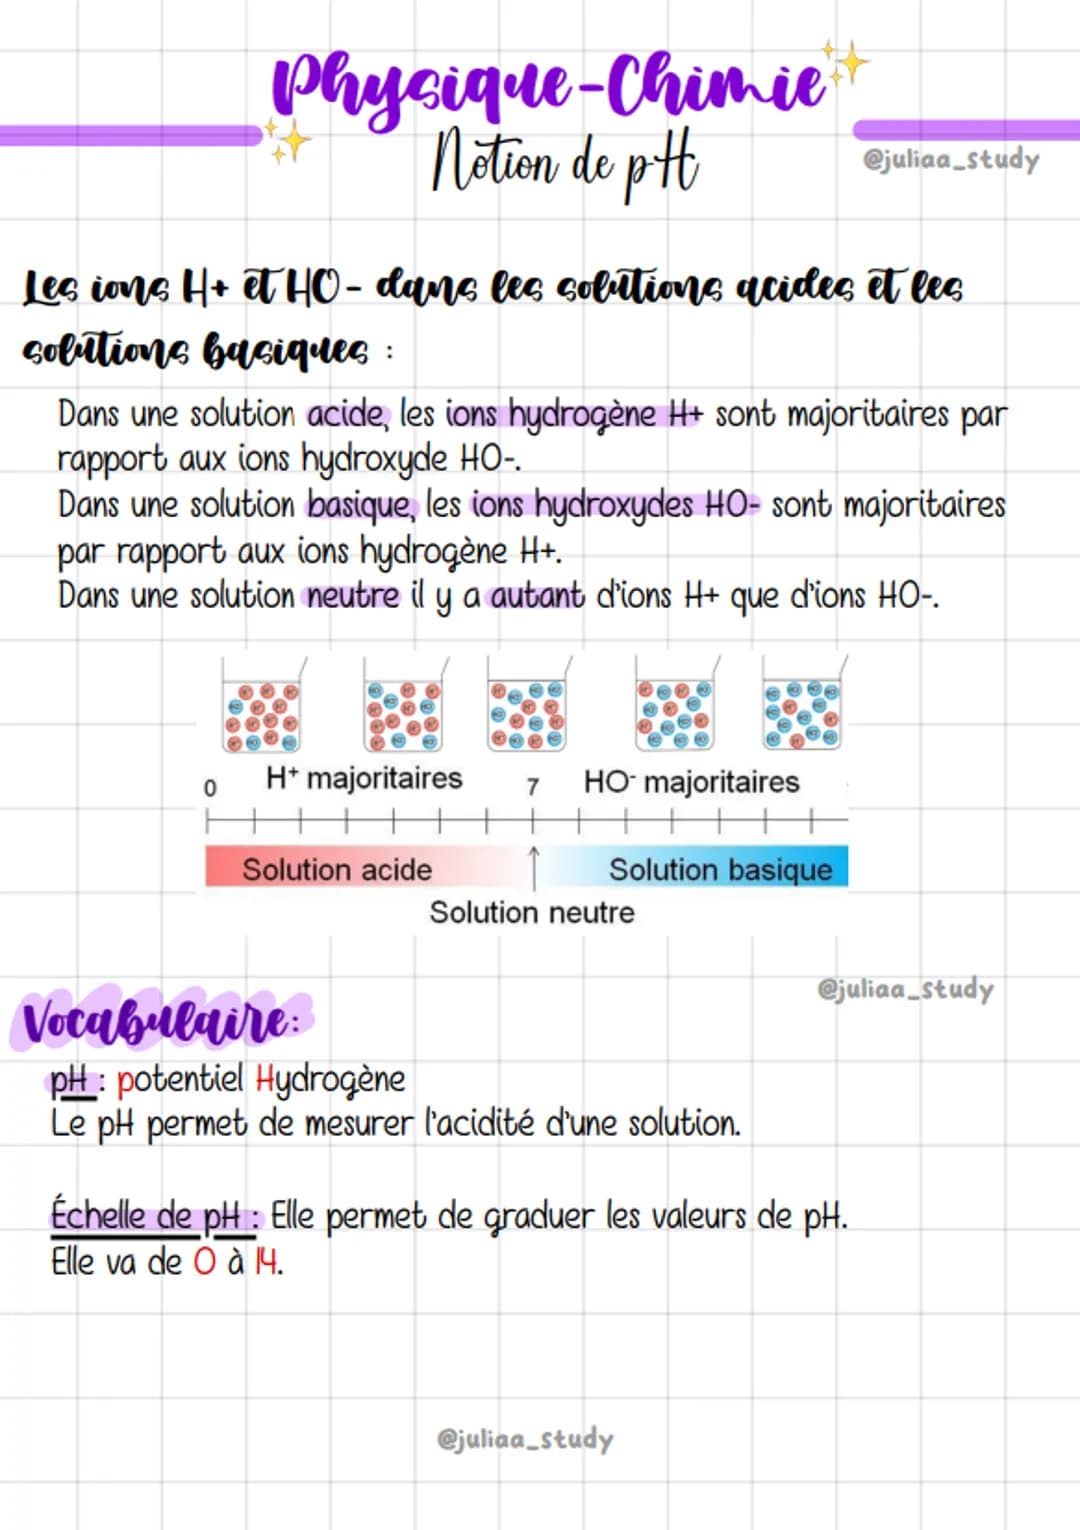 Physique-Chimie
Notion de pH
@juliaa_study
Les ions H+ et HO- dans les solutions acides et les
solutions basiques :
Dans une solution acide, les ions hydrogène H+ sont majoritaires par
rapport aux ions hydroxyde HO-.
Dans une solution basique, les ions hydroxydes HO- sont majoritaires
par rapport aux ions hydrogène H+.
Dans une solution neutre il y a autant d'ions H+ que d'ions HO-.
0 H⁺ majoritaires 7 HO⁻ majoritaires
Solution acide Solution basique
Solution neutre
@juliaa_study
Vocabulaire:
pH : potentiel Hydrogène
Le pH permet de mesurer l'acidité d'une solution.
Échelle de pH : Elle permet de graduer les valeurs de pH.
Elle va de 0 à 14.
@juliaa_study